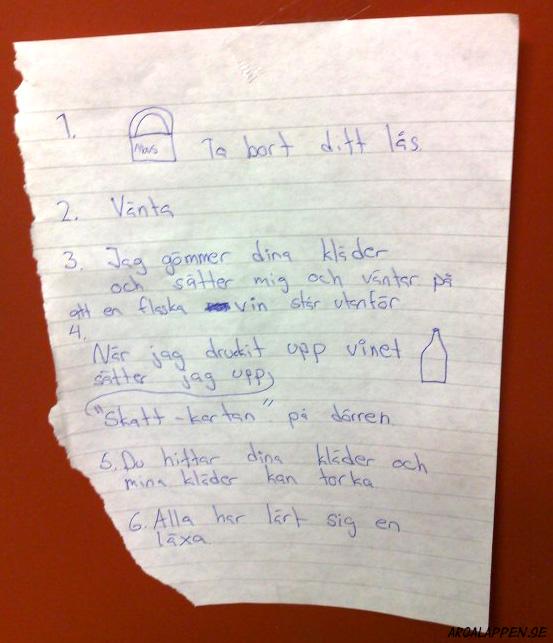 1.
Ta bort ditt lås.
2. Vänta
3. Jag gömmer dina kläder
och sätter mig och väntar på
att en flaska vin står utanför
4.
När jag druckit upp vinet
sätter jag upp
"Skatt-kartan" på dörren.
5. Du hittar dina kläder och
mina kläder kan torka
6. Alla har lärt sig en
läxa.
ARGALAPPEN.SE